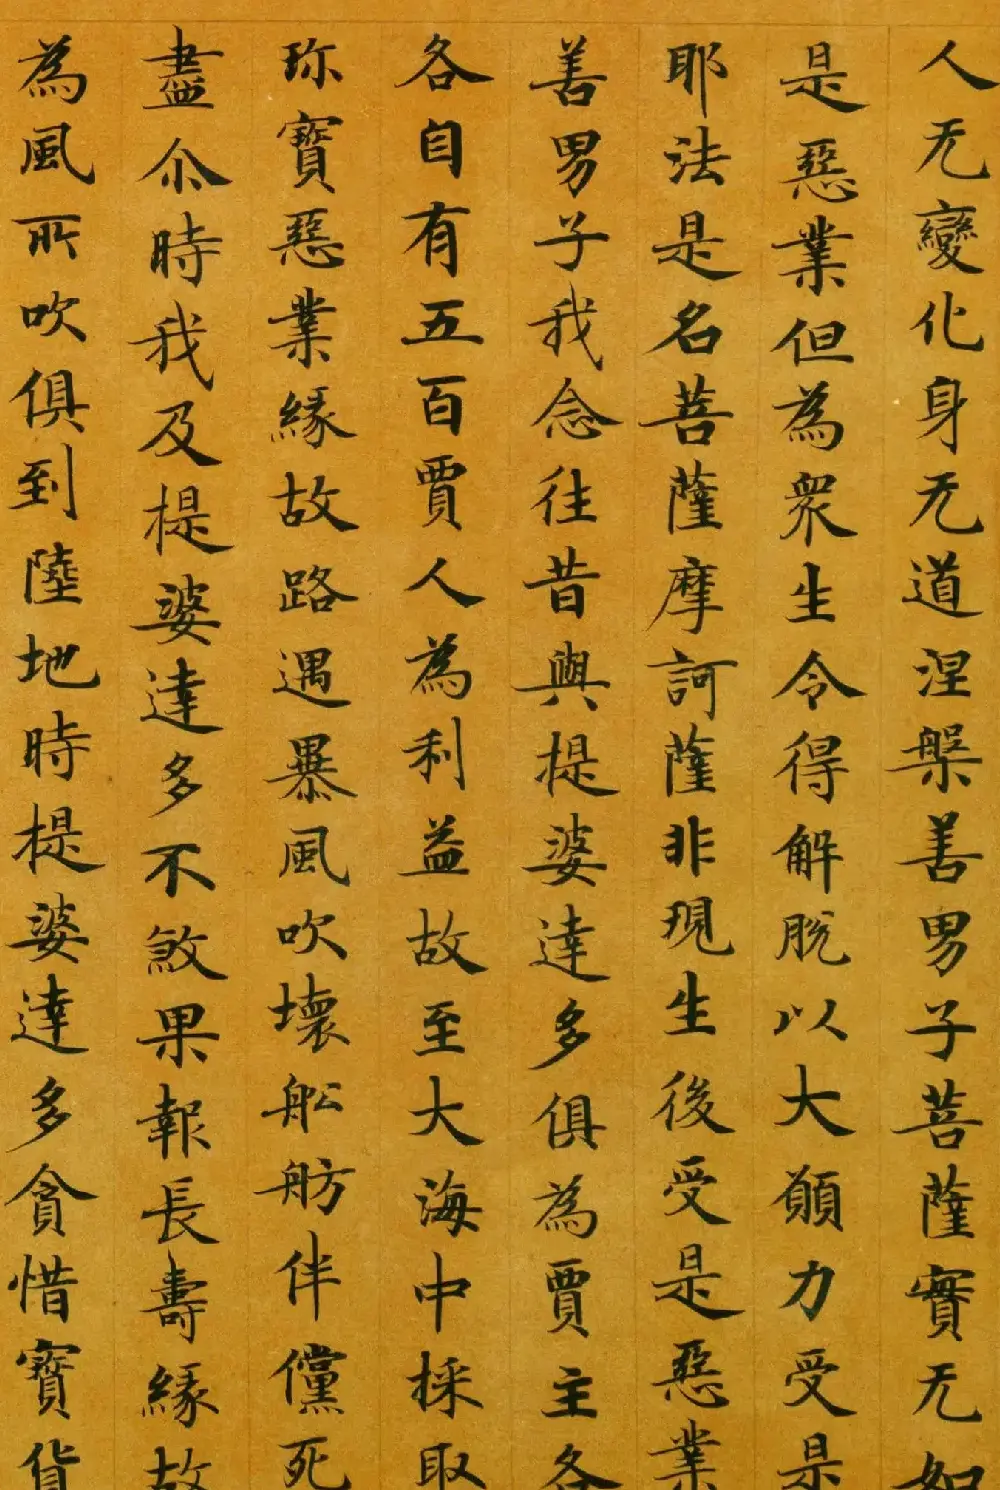 人无變化身无道涅槃善男子菩薩實无如
是惡業但為衆生令得解脫以大願力受是
耶法是名菩薩摩訶薩非現生後受是惡業
善男子我念往昔與提婆達多俱為賈主各
各自有五百賈人為利益故至大海中採取
珎寶惡業緣故路遇暴風吹壞舩舫伴儻死
盡尒時我及提婆達多不煞果報長壽緣故
為風所吹俱到陸地時提婆達多貪惜寶貨